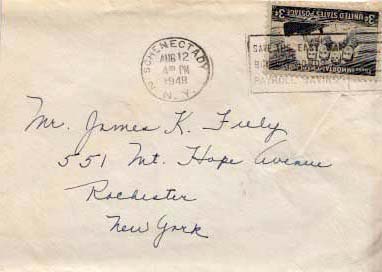 SCHENECTADY
AUG 12
4 PM
1948
N. Y.
3¢ UNITED STATES POSTAGE 3¢
IMMORTAL
SAVE THE EASY WAY
PAYROLL SAVINGS
Mr. James K. Feely
551 Mt. Hope Avenue
Rochester
New York